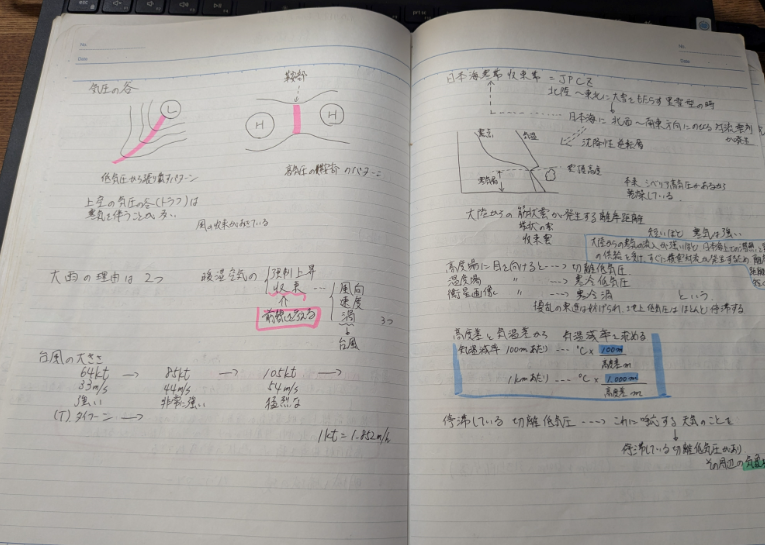 気圧の谷
鞍部
L
H
H
低気圧から延びるパターン
高気圧の鞍部のパターン
上空の気圧の谷(トラフ)は
寒気を伴うことが多い
風の収束がおきている
大雨の理由は2つ
暖湿空気の
強制上昇
収束 … 風向
速度
渦
3つ
台風
台風の大きさ
64kt → 85kt → 105kt →
33m/s 44m/s 54m/s
強い 非常に強い 猛烈な
(T) タイフーン →
1kt = 1.852m/h
日本海寒帯収束帯 = JPCZ
北陸〜東北に大雪をもたらす
日本海に北西〜南東方向にのびる
沈降性逆転層
雲頂高度
本来シベリア高気圧があるから
乾燥している.
大陸からの筋状雲が発生する離岸距離
短いほど 寒気は強い
高度場に目を向けると---→ 切離低気圧
温度場 〃 ---→ 寒冷低気圧
衛星画像 〃 ---→ 寒冷渦 という
地上低気圧はほとんど停滞する
高度差と気温差から 気温減率を求める
気温減率 100mあたり --- ℃ × 100m
高度差m
1kmあたり --- ℃ × 1,000m
高度差m
停滞している 切離低気圧 ----→ これに対応する 大気のことを
停滞している切離低気圧があり
その周辺の